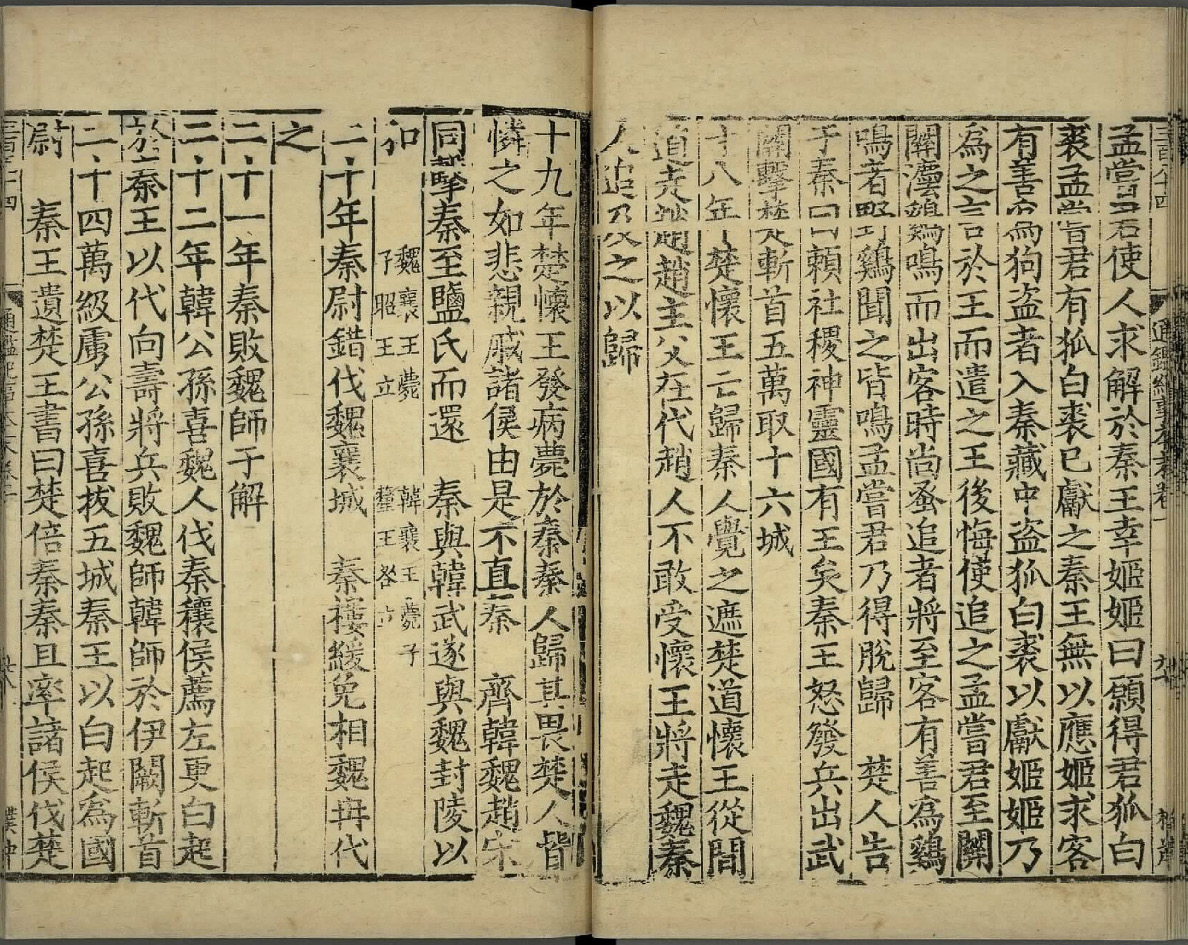 孟嘗君使人求解於秦王幸姬姬曰願得君狐白
裘孟嘗君有狐白裘已獻之秦王無以應姬求客
有善為狗盗者入秦藏中盗狐白裘以獻姬姬乃
為之言於王而遣之王後悔使追之孟嘗君至關
關灋雞鳴而出客時尚蚤追者將至客有善為鷄
鳴者野鷄聞之皆鳴孟嘗君乃得脫歸 楚人告
于秦曰賴社稷神靈國有王矣秦王怒發兵出武
關擊楚斬首五萬取十六城
十八年楚懷王亡歸秦人覺之遮楚道懷王從間
道走趙趙主父在代趙人不敢受懷王將走魏秦
人追及之以歸
十九年楚懷王發病薨於秦秦人歸其喪楚人皆
憐之如悲親戚諸侯由是不直秦 齊韓魏趙宋
同擊秦至鹽氏而還 秦與韓武遂與魏封陵以
和 魏襄王薨子昭王立 韓襄王薨子釐王咎立
二十年秦尉錯伐魏襄城 秦樓緩免相魏冉代
之
二十一年秦敗魏師于解
二十二年韓公孫喜魏人伐秦穰侯薦左更白起
於秦王以代向壽將兵敗魏師韓師於伊闕斬首
二十四萬級虜公孫喜拔五城秦王以白起為國
尉 秦王遺楚王書曰楚倍秦秦且率諸侯伐楚